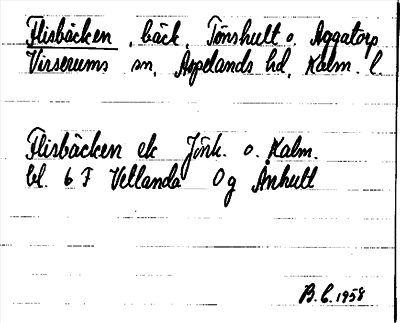 Flisbäcken, bäck, Tönshult o. Aggatorp
Virserums sn, Aspelands hd, Kalm. l.
Flisbäcken ek Jönk. o. Kalm.
bl. 6 F Vetlanda 0g Århult
B.C. 1958